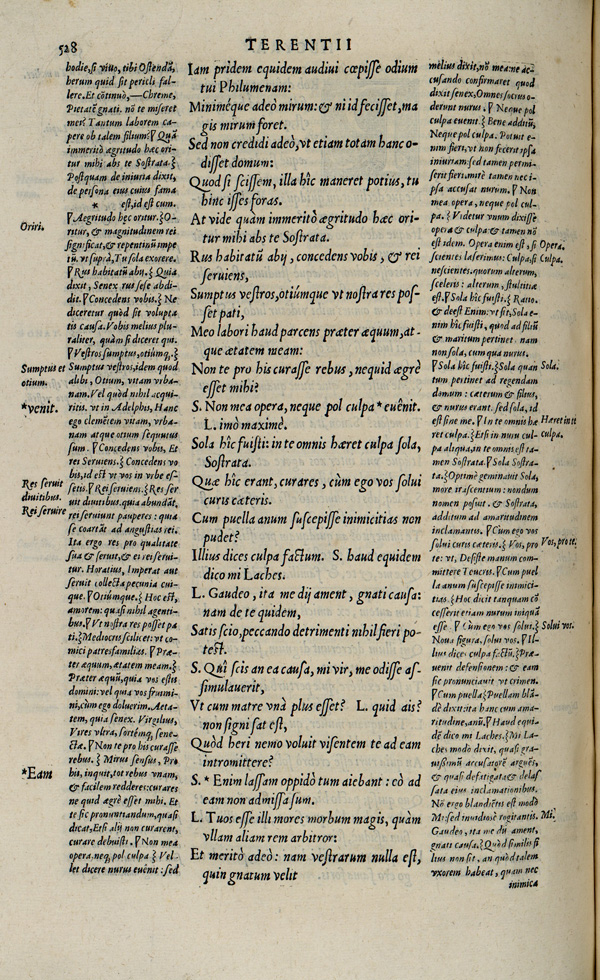 528
TERENTII
hodie, si viuo, tibi Ostendã,
herum quid sit pericli fal-
lere. Et cõtinuò, —Chreme,
Pietatẽ gnati. nõ te miseret
mei? Tantum laborem ca-
pere ob talem filium? ꝗ Quã
immeritò ægritudo hæc ori-
tur mihi abs te Sostrata. ξ
Postquam de iniuria dixit,
de persona eius cuius fama
*
est, id est cum.
Oriri.
ꝗ Aegritudo hęc oritur. ξ O-
ritur, & magnitudinem rei
significat, & repentinũ impe
tũ. vt suprà, Tu sola exorere.
ꝗ Rus habitatũ abij. ξ Quia
dixit, Senex rus sese abdi-
dit. ꝗ Concedens vobis. ξ Ne
diceretur quòd sit volupta
tis causa. Vobis melius plu-
raliter, quàm si diceret qui.
ꝗ Vestros sumptus, otiũmq́;. ξ
Sumptus et
otium.
Sumptus vestros, idem quod
alibi, Otium, vitam vrba-
nam. Vel quòd nihil acqui-
*venit.
ritis. vt in Adelphis, Hanc
ego clemẽtem vitam, vrba-
nam atque otium sequutus
sum. ꝗ Concedens vobis, Et
rei Seruiens. ξ Concedens vo
bis, id est vt vos in vrbe es-
Res seruit
diuitibus.
Rei seruire
setis. ꝗ Rei seruiens. ξ Res ser
uit diuitibus. quia abundãt,
rei seruiunt pauperes: quia
se coartãt ad angustias rei.
Ita ergo res pro qualitate
sua & seruit, & ei rei serui-
tur. Horatius, Imperat aut
seruit collecta pecunia cui-
que. ꝗ Otiũmque. ξ Hoc est,
amorem: quasi nihil agenti-
bus. ꝗ Vt nostra res posset pa
ti. ξ Mediocris scilicet: vt co-
mici patresfamilias. ꝗ Præ-
ter æquum, ætatem meam. ξ
Præter æquũ, quia vos estis
domini: vel quia vos fræmi-
ni, cùm ego dolucrim. Aeta-
tem, quia senex. Virgilius,
Vires vltra, sortémq, sene-
ctæ. ꝗ Non te pro his curasse
rebus. ξ Mirus sensus, Pro
*Eam
his, inquit, tot rebus vnam,
& facilem redderes: curares
ne quid ægrè esset mihi. Et
te sic pronuntiandum, quasi
dicat, Etsi alij non curarent,
curare debuisti. ꝗ Non mea
opera, neq, pol culpa ξ Vel-
let dicere nurus euênit: sed
Iam pridem equidem audiui cœpisse odium
tui Philumenam:
Miniméque adeò mirum: & ni id fecisset, ma
gis mirum foret.
Sed non credidi adeò, vt etiam totam hanc o-
disset domum:
Quod si scissem, illa hîc maneret potius, tu
hinc isses foras.
At vide quàm immeritò ægritudo hæc ori-
tur mihi abs te Sostrata.
Rus habitatũ abij, concedens vobis, & rei
seruiens,
Sumptus vestros, otiúmque vt nostra res pos-
set pati,
Meo labori haud parcens præter æquum, at-
que ætatem meam:
Non te pro his curasse rebus, nequid ægrè
esset mihi?
S. Non mea opera, neque pol culpa * euênit.
L. imò maximè.
Sola hîc fuisti: in te omnis hæret culpa sola,
Sostrata.
Quæ hîc erant, curares, cùm ego vos solui
curis cæteris.
Cum puella anum suscepisse inimicitias non
pudet?
Illius dices culpa factum. S. haud equidem
dico mi Laches.
L. Gaudeo, ita me dij ament, gnati causa:
nam de te quidem,
Satis scio, peccando detrimenti nihil fieri po-
test.
S. Quì scis an ea causa, mi vir, me odisse as-
simulauerit,
Vt cum matre vnà plus esset? L. quid ais?
non signi sat est,
Quòd heri nemo voluit visentem te ad eam
intromittere?
S. * Enim lassam oppidò tum aiebant: eò ad
eam non admissa sum.
L. Tuos esse illi mores morbum magis, quàm
vllam aliam rem arbitror:
Et meritò adeò: nam vestrarum nulla est,
quin gnatum velit
mélius dixit, nõ mea: ne ac-
cusando confirmaret quod
dixit senex, Omnes socrus o-
derunt nurus. ꝗ Neque pol
culpa euenit. ξ Bene addidit,
Neque pol culpa. Potuit e-
nim fieri, vt non fecerit ipsa
iniuriam: sed tamen permi-
serit fieri. mirè tamen nec i-
psa accusat nurum. ꝗ Non
mea opera, neque pol cul-
pa. ξ Videtur vnum dixisse
opera & culpa: & tamen nõ
est idem. Opera enim est, si
Opera.
scientes læserimus: Culpa, si
Culpa.
nescientes. quorum alterum,
sceleris: alterum, stultitiæ
est. ꝗ Sola hîc fuisti. ξ Ratio.
& deest Enim: vt sit, Sola e-
nim hîc fuisti, quod ad filiũ
& maritum pertinet: nam
non sola, cum qua nurus.
ꝗ Sola hîc fuisti. ξ Sola quan
Sola.
tum pertinet ad regendam
domum: cæterum & filius,
& nurus erant. sed sola, id
est sine me. ꝗ In te omnis hæ
Hæret in te
culpa.
ret culpa. ξ Etsi in nurũ cul-
pa aliqua, in te omnis est ta-
men Sostrata. ꝗ Sola Sostra-
ta. ξ Optimè geminauit Sola,
more irascentium: nondum
nomen posuit. & Sostrata,
additum ad amaritudinem
inclamantis. ꝗ Cum ego vos
solui curis cæteris. ξ Vos, pro
Vos, pro te.
te: vt, Desiste manum com-
mittere Teucris. ꝗ Cum puel
la anum suscepisse inimici-
tias. ξ Hoc dicit tanquam cõ
cesserit etiam nurum iniquã
esse. ꝗ Cùm ego vos solui. ξ
Solui vos.
Noua figura, solui vos. ꝗ Il-
lius dices culpa factũ. ξ Præ-
uenit defensionem: & eam
sic pronunciauit vt crimen.
ꝗ Cum puella. ξ Puellam blã-
dè dixit: ita hanc cum ama-
ritudine, anũ. ꝗ Haud equi-
dẽ dico mi Laches. ξ Mi La-
ches modo dixit, quasi gra-
uissimũ accusatorẽ arguẽs,
& quasi defatigata & delas
sata eius inclamationibus.
Nõ ergo blandiẽtis est modò
Mi: sed inuidiosè rogitantis.
Mi.
Gaudeo, ita me dij ament,
gnati causa. ξ Quòd similis fi
lius non sit, an quòd talem
vxorem habeat, quam nec
inimica